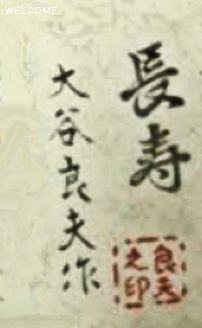 WELCOME
長寿
大谷良夫作
良夫
之印